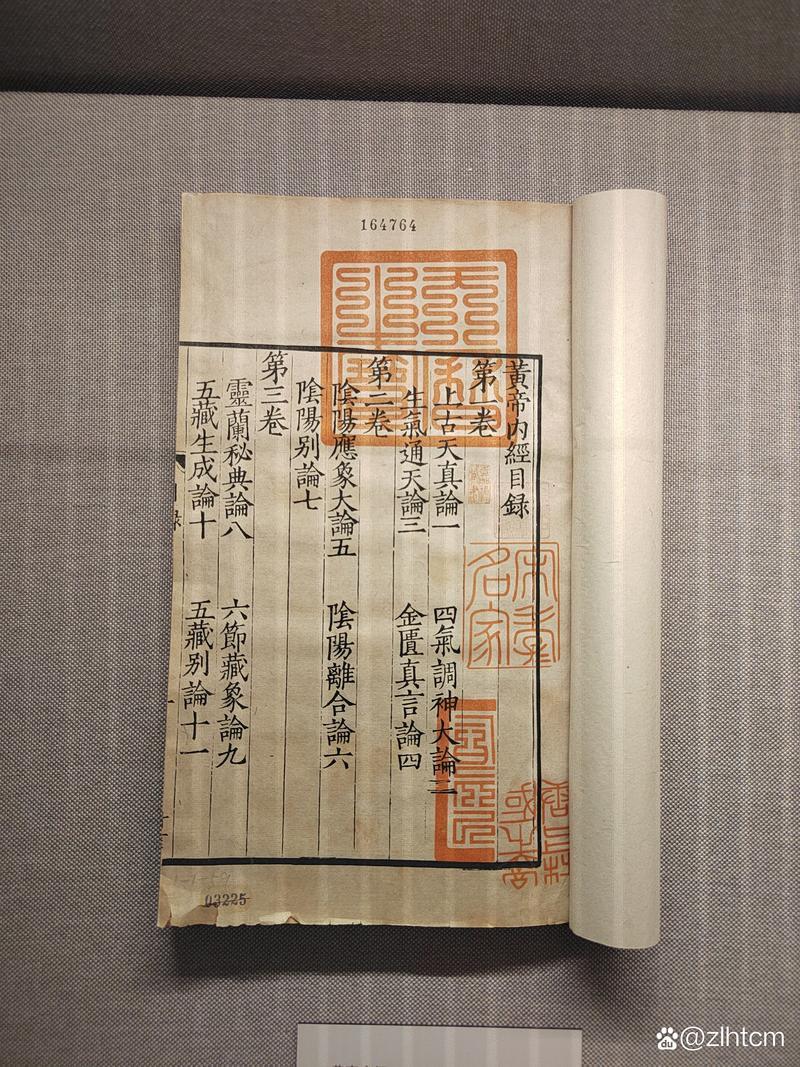 164764
黃帝内經目録
第一卷
上古天真論一 四氣調神大論二
生氣通天論三 金匱真言論四
第二卷
陰陽應象大論五 陰陽離合論六
陰陽别論七
第三卷
靈蘭秘典論八 六節藏象論九
五藏生成論十 五藏别論十一
03225
@zlhtcm